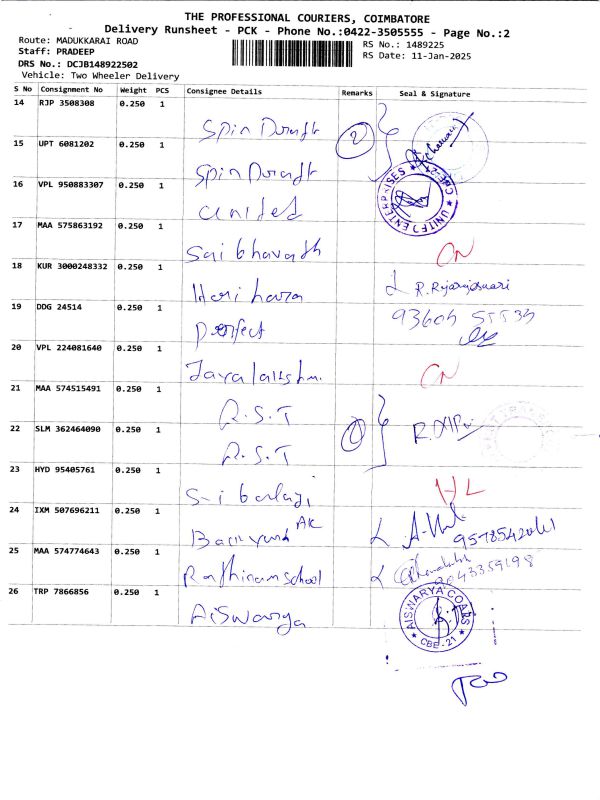 THE PROFESSIONAL COURIERS, COIMBATORE
Delivery Runsheet - PCK - Phone No.:0422-3505555 - Page No.:2
Route: MADUKKARAI ROAD
Staff: PRADEEP
RS No.: 1489225
RS Date: 11-Jan-2025
DRS No.: DCJB148922502
Vehicle: Two Wheeler Delivery
S No Consignment No Weight PCS Consignee Details Remarks Seal & Signature
14 RJP 3508308 0.250 1
Spin Draft 2
15 UPT 6081202 0.250 1
Spin Draft
16 VPL 950883307 0.250 1
United
UNITED ENTERPRISES CBE-21
17 MAA 575863192 0.250 1
Sai bharath CN
18 KUR 3000248332 0.250 1
Hari hara R.Rajarajeswari
19 DDG 24514 0.250 1
Perfect 93605 57534
20 VPL 224081640 0.250 1
Jayalakshmi CN
21 MAA 574515491 0.250 1
R.S.T
22 SLM 362464090 0.250 1
R.S.T
23 HYD 95405761 0.250 1
Sri balaji HL
24 IXM 507696211 0.250 1
AK
25 MAA 574774643 0.250 1
Rathinam school 9043359198
26 TRP 7866856 0.250 1
Aiswarya
AISWARYA COATS CBE-21